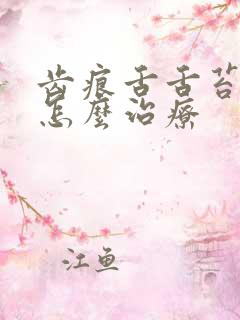 齿痕舌舌苔
怎麽治療
江鱼